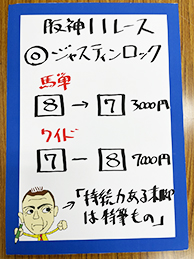 阪神11レース
◎ジャスティンロック
馬単
8→7 3000円
ワイド
7-8 7000円
←「持続力ある末脚
は特筆もの」